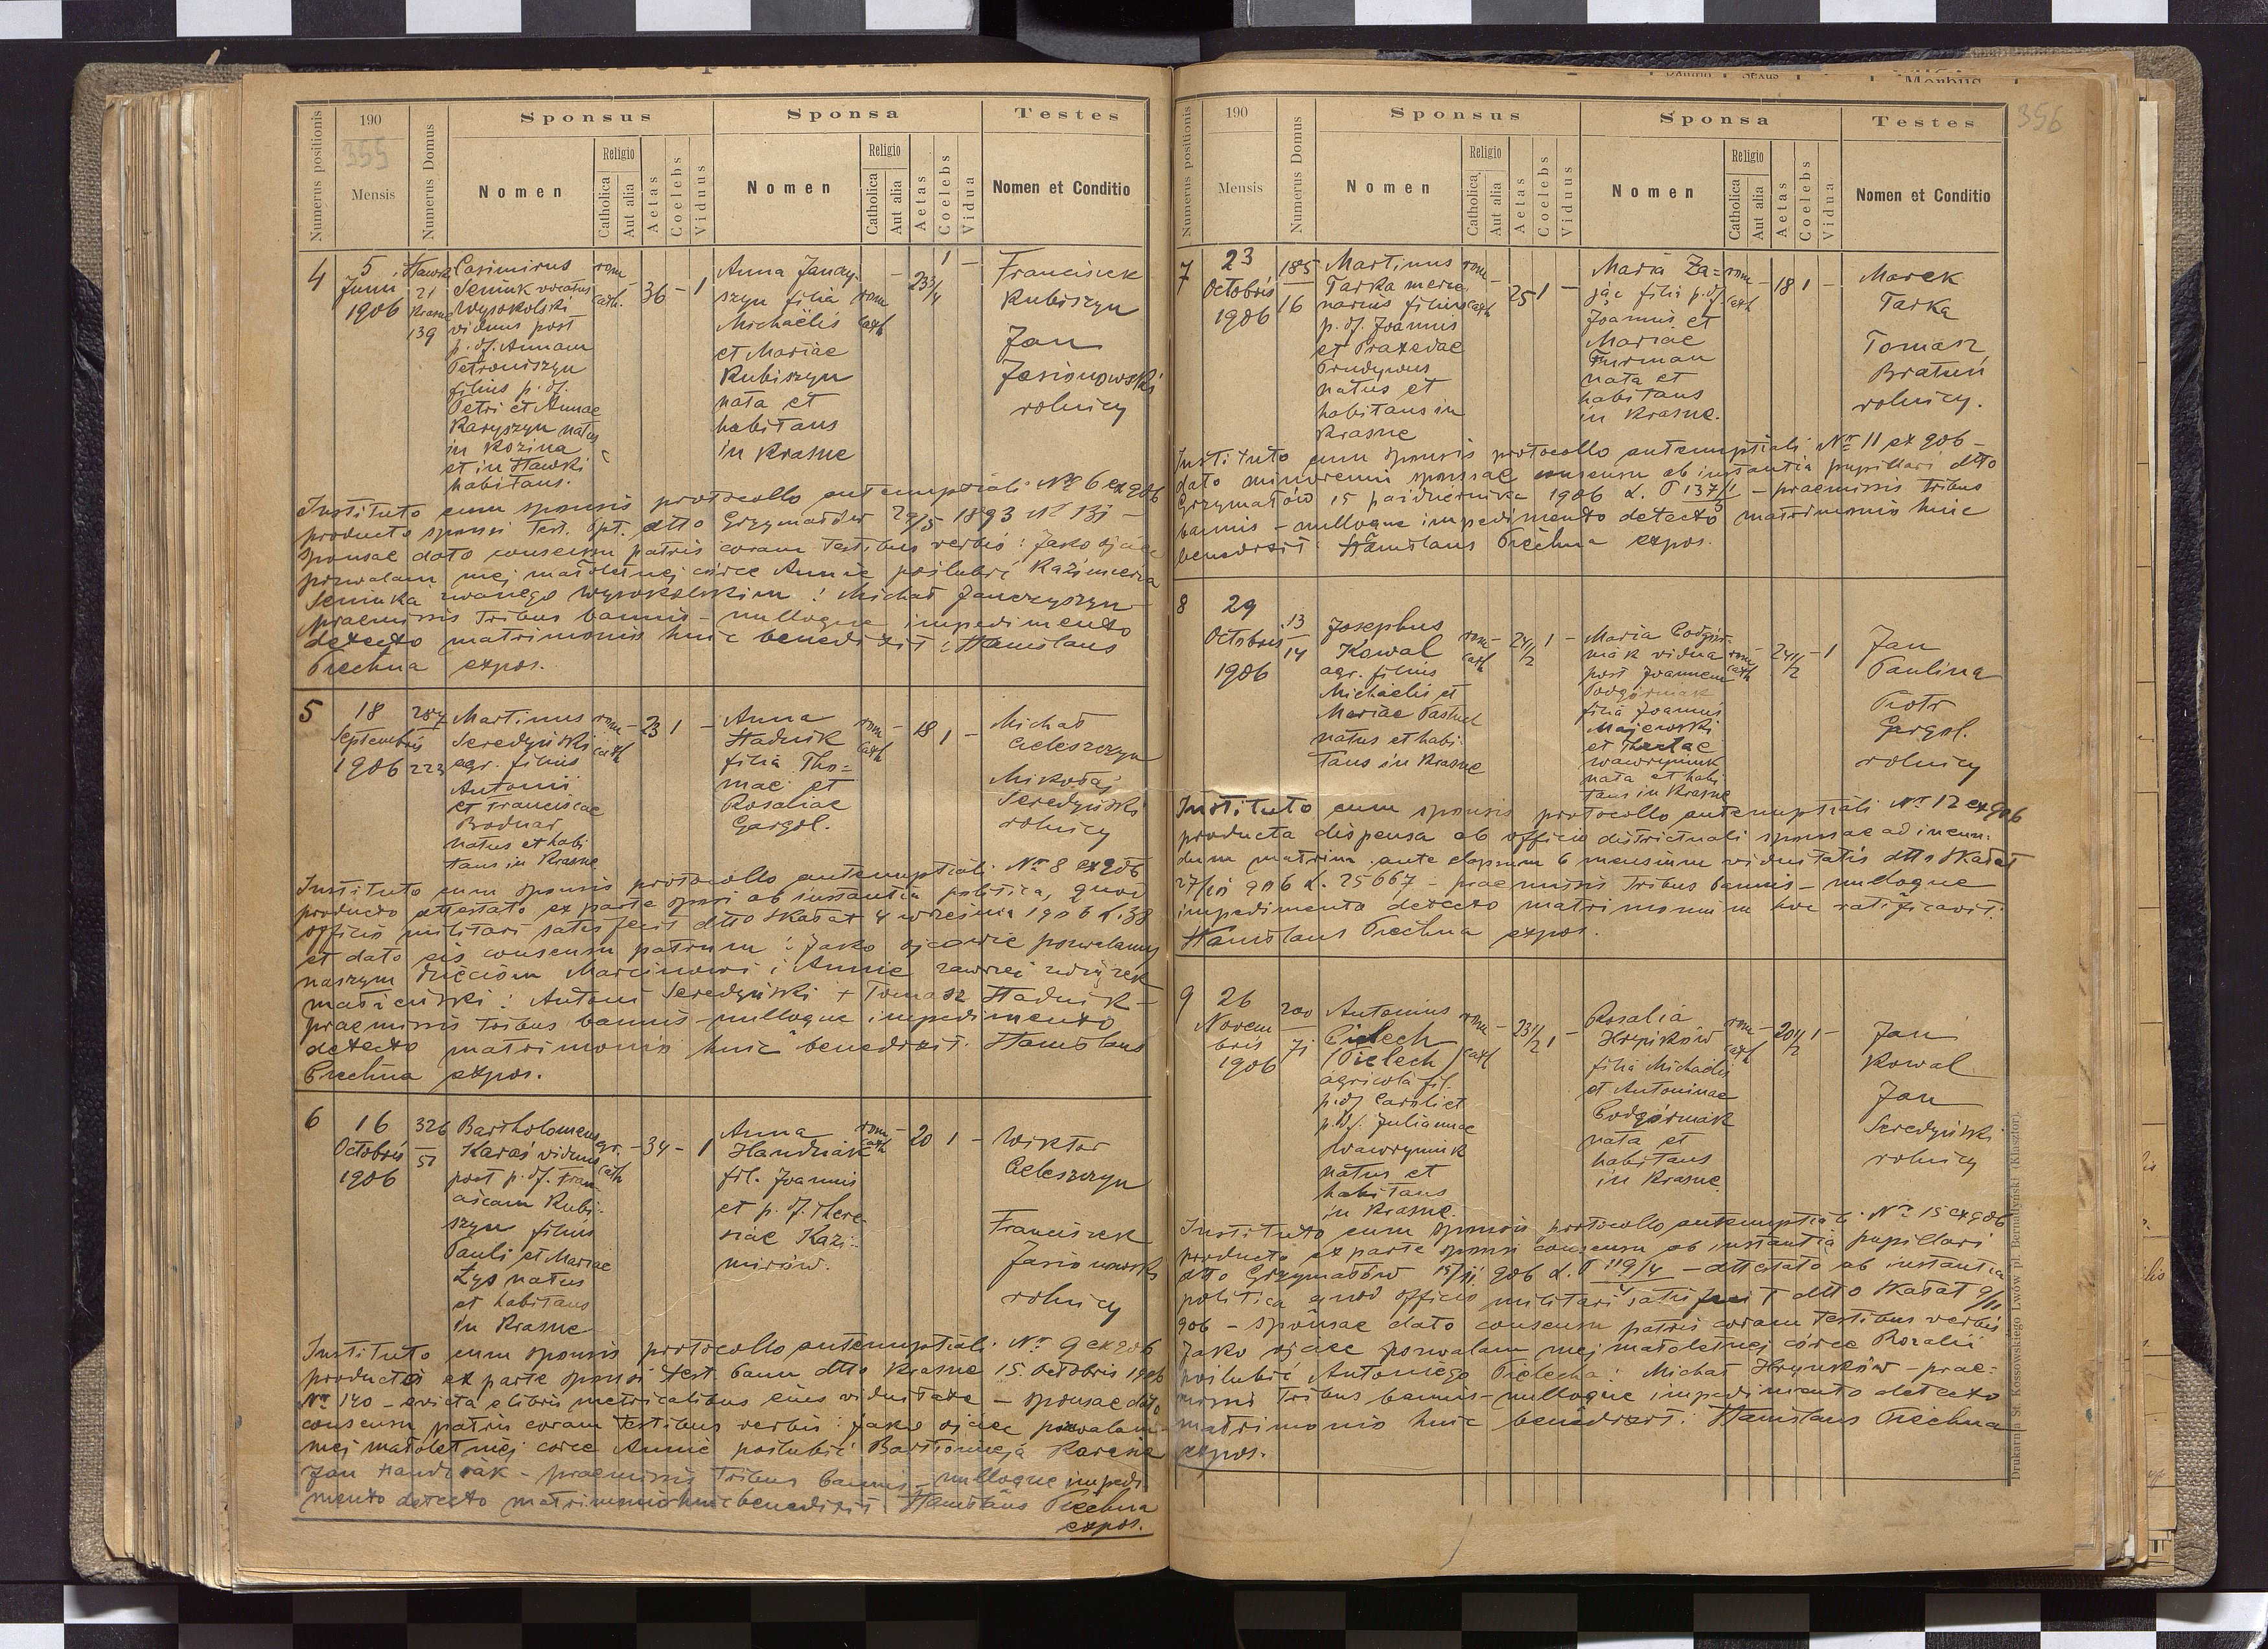 355
Numerus positionis
190
Mensis
Numerus Domus
Sponsus
Nomen
Religio
Catholica
Aut alia
Aetas
Coelebs
Viduus
Sponsa
Nomen
Religio
Catholica
Aut alia
Aetas
Coelebs
Vidua
Testes
Nomen et Conditio
4
5
Junii
1906
Hawki
21
Krasne
139
Casimirus
Seniuk vocatus
Wysokolski
viduus post
p. df. Annam
Petroniszyn
filius p. df.
Petri et Annae
Karyszyn natus
in Kozina
et in Hawki
habitans.
rom
cath.
36 - 1
Anna Janczy-
szyn filia
Michaëlis
et Mariae
Kubiszyn
nata et
habitans
in Krasne
rom
cath
23 3/4
1 -
Franciszek
Kubiszyn
Jan
Jasionowski
rolnicy
Instituto cum sponsis protocollo antenuptiali Nr 6 ex 906
producto sponsi test. Spt. dtto Grzymałów 29/5 1893 Nr 131 -
sponsae dato consensu patris coram testibus verbis: Jako ojciec
pozwalam mej małoletniej córce Annie poślubić Kazimierza
Seniuka zwanego Wysokolskim! Michał Janczyszyn -
praemissis tribus bannis - nulloque impedimento
detecto matrimonio huic benedixit: Stanislaus
Piechna expos.
5
18
Septembris
1906
287
223
Martinus
Seredyński
agr. filius
Antonii
et Franciscae
Bodnar
natus et habi
tans in Krasne
rom
cath
- 23 1 -
Anna
Hadnik
filia Tho=
mae et
Rosaliae
Gargol.
rom
cath
- 18 1 -
Michał
Celeszczyn
Mikołaj
Seredyński
rolnicy
Instituto cum sponsis protocollo antenuptiali Nr 8 ex 906
producto attestato ex parte sponsi ab instantia politica, quod
officio militari satisfecit dtto Skałat 4 września 1906 L. 38
et dato eis consensu patrum: Jako ojcowie pozwalamy
naszym dzieciom Marcinowi i Annie zawrzeć związek
małżeński: Antoni Seredyński + Tomasz Hadnik -
praemissis tribus bannis - nulloque impedimento
detecto matrimonio huic benedixit. Stanislaus
Piechna expos.
6
16
Octobris
1906
326
51
Bartholomeus
Karaś viduus
post p. df. Fran-
ciscam Kubi-
szyn filius
Pauli et Mariae
Łys natus
et habitans
in Krasne
gr.
cath
- 34 - 1
Anna
Handziak
fil. Joannis
et p. df. There-
siae Kazi-
mirów.
rom
cath
- 20 1 -
Wiktor
Celeszczyn
Franciszek
Jasionowski
rolnicy
Instituto cum sponsis protocollo antenuptiali Nr 9 ex 906
producto ex parte sponsi test. bann dtto Krasne 15. Octobris 1906
Nr 140 - evicta e libris metricalibus eius viduitate - sponsae dato
consensu patris coram testibus verbis: Jako ojciec pozwalam
mej małoletniej córce Annie poślubić Bartłomieja Karasia
Jan Handziak - praemissis tribus bannis - nulloque impedi
mento detecto matrimonio huic benedixit: Stanislaus Piechna
expos.
356
Morbus
Numerus positionis
190
Mensis
Numerus Domus
Sponsus
Nomen
Religio
Catholica
Aut alia
Aetas
Coelebs
Viduus
Sponsa
Nomen
Religio
Catholica
Aut alia
Aetas
Coelebs
Vidua
Testes
Nomen et Conditio
7
23
Octobris
1906
185
16
Martinus
Tarka merce
narius filius
p. df. Joannis
et Praxedae
Prudywus
natus et
habitans in
Krasne
rom
cath
- 25 1 -
Maria Za=
jąc filia p. df.
Joannis et
Mariae
Furman
nata et
habitans
in Krasne.
rom
cath
- 18 1 -
Marek
Tarka
Tomasz
Bratuń
rolnicy.
Instituto cum sponsis protocollo antenuptiali Nr 11 ex 906 -
dato minorenni sponsae consensu ab instantia pupillari dtto
Grzymałów 15 października 1906 L. P 137/1 - praemissis tribus
bannis - nulloque impedimento detecto matrimonio huic
benedixit Stanislaus Piechna expos.
8
29
Octobris
1906
13
14
Josephus
Kowal
agr. filius
Michaelis et
Mariae Pastuch
natus et habi-
tans in Krasne
rom
cath
- 24 1/2 1 -
Maria Podgór-
niak vidua
post Joannem
Podgórniak
filia Joannis
Majewski
et Theclae
Wawryniuk
nata et habi
tans in Krasne
rom
cath
- 24 1/2 - 1
Jan
Paulina
Piotr
Gargol.
rolnicy
Instituto cum sponsis protocollo antenuptiali Nr 12 ex 906
producta dispensa ab officio districtuali sponsae ad ineun-
dum matrim. ante elapsum 6 mensium viduitatis dtto Skałat
27/10 906 L. 25667 - praemissis tribus bannis - nulloque
impedimento detecto matrimonium hoc ratificavit.
Stanislaus Piechna expos.
9
26
Novem
bris
1906
200
71
Antonius
Pielech
(Pielech)
agricola fil.
p. df. Caroli et
p. df. Juliannae
Wawryniuk
natus et
habitans
in Krasne.
rom
cath
- 23 1/2 1 -
Rosalia
Hryńków
filia Michaelis
et Antoninae
Podgórniak
nata et
habitans
in Krasne
rom
cath
- 20 1/2 1 -
Jan
Kowal
Jan
Seredyński
rolnicy
Instituto cum sponsis protocollo antenuptiali Nr 15 ex 906
producto ex parte sponsi consensu ab instantia pupillari
dtto Grzymałów 15/11 906 L. P 119/4 - attestato ab instantia
politica quod officio militari satisfecit dtto Skałat 9/11
906 - sponsae dato consensu patris coram testibus verbis
Jako ojciec pozwalam mej małoletniej córce Rozalii
poślubić Antoniego Pielecha: Michał Hryńków - prae-
missis tribus bannis - nulloque impedimento detecto
matrimonio huic benedixit: Stanislaus Piechna
expos.
Drukarnia St. Kossowskiego Lwów pl. Bernardyński (Klasztor).